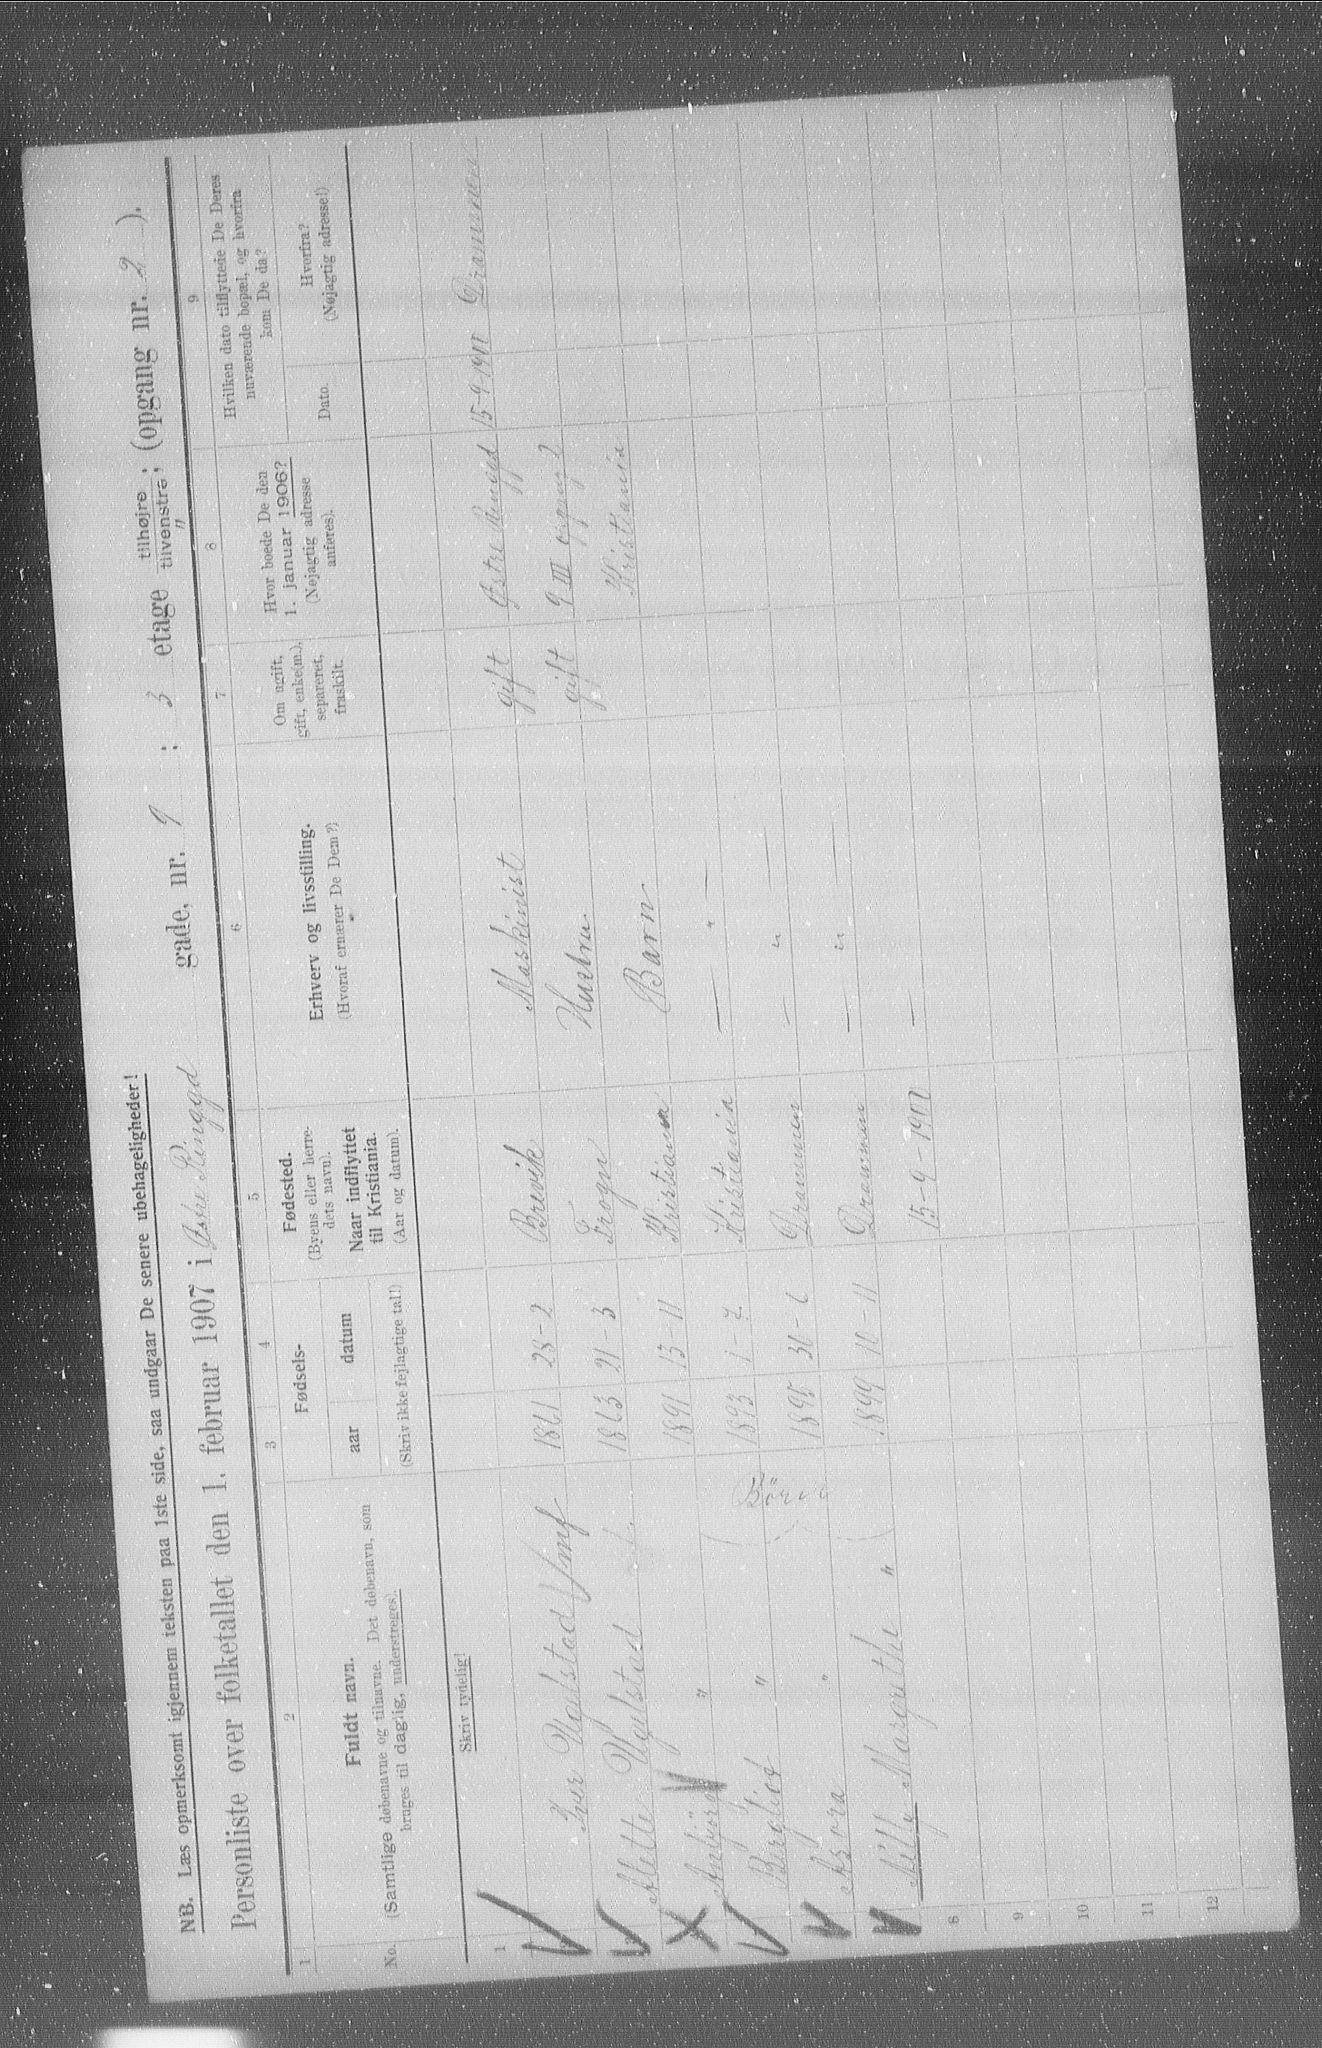 NB. Læs opmerksomt igjennem teksten paa 1ste side, saa undgaar De senere ubehageligheder!
Personliste over folketallet den 1. februar 1907 i Østre Ringgd gade, nr. 9 ; 3 etage tilhøjre ; tilvenstre ; (opgang nr. 2 ).
1 2 3 4 5 6 7 8 9
No. Fuldt navn.
(Samtlige døbenavne og tilnavne. Det døbenavn, som
bruges til daglig, understreges).
Fødsels-
aar datum
(Skriv ikke fejlagtige tal!)
Fødested.
(Byens eller herre-
dets navn).
Naar indflyttet
til Kristiania.
(Aar og datum).
Erhverv og livsstilling.
(Hvoraf ernærer De Dem?)
Om ugift,
gift, enke(m.),
separeret,
fraskilt.
Hvor boede De den
1. januar 1906?
(Nøjagtig adresse
anføres).
Hvilken dato tilflyttede De Deres
nuværende bopæl, og hvorfra
kom De da?
Dato. Hvorfra?
(Nøjagtig adresse!)
Skriv tydelig!
1
Ivar Ugelstad 1861 Brevik Maskinist gift Østre Ringgd 15-9-1902 Drammen
Alette Ugelstad 1863 21-3 Frogn Hustru gift 9 III opgang 2
" 1891 13-11 Kristiania Barn Kristiania
Bergliot " 1893 Kristiania — " —
Børn
Asora " 1895 30-6 Drammen — " —
Lilly Margrethe " 1899 10-11 Drammen — " —
15-9-1902 —
8
9
10
11
12